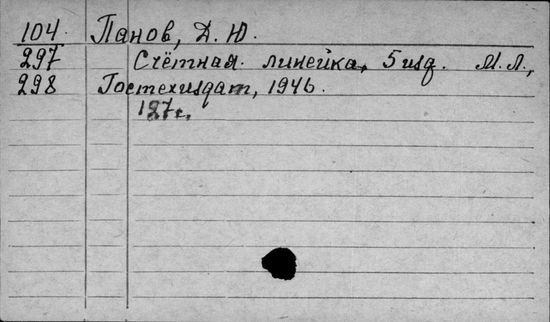 104. Панов, Д. Ю.
297 Счётная линейка, 5 изд. М. Л.,
298 Гостехиздат, 1946.
127 с.